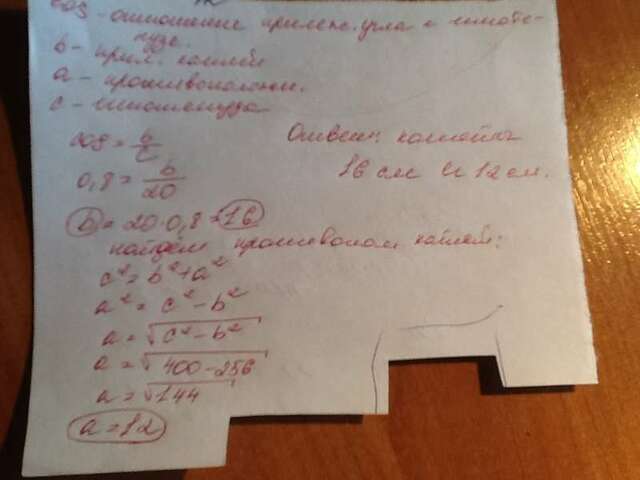 cos - отношение прилеж. угла к гипоте-
нузе.
b - прил. катет
a - противополож.
c - гипотенуза
cos = b/c
0,8 = b/20
b = 20·0,8 = 16
найдём противопол катет:
c² = b² + a²
a² = c² - b²
a = √c² - b²
a = √400 - 256
a = √144
a = 12
Ответ: катеты
16 см и 12 см.